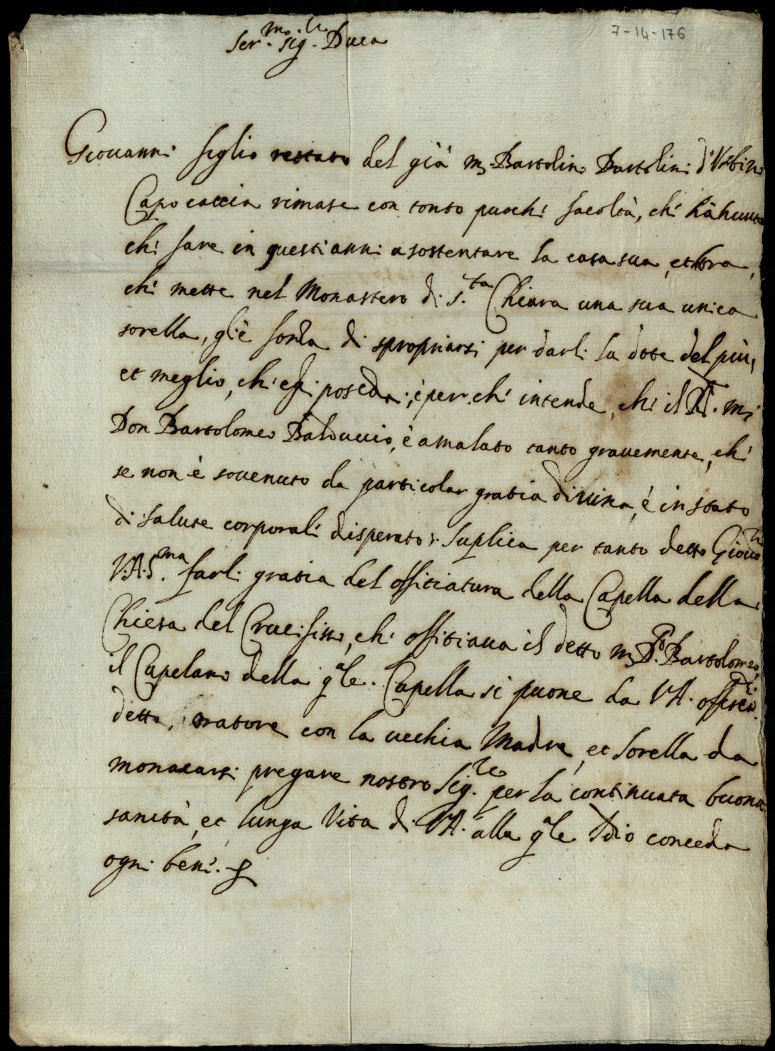 7-14-176
Ser.mo Sig.re Duca
Giovanni figlio restato del già m. Bartolino Bartolini d'Urbino
Capo caccia rimase con tanto puochi facoltà, chi hà hauuto
chi fare in questi anni a sostentare la casa sua, et hora,
chi mette nel Monastero di S.ta Chiara una sua unica
sorella, gl'è forza di spropriarsi per darli la dote del più,
et meglio, chi egli posseda; è per chi intende, chi il m.
Don Bartolomeo Balduccio, è amalato tanto gravemente, chi
se non è sovenuto da particolar gratia divina, è in stato
di salute corporali disperato: Suplica per tanto detto Giova.ni
V.A.S.ma farli gratia del offitiatura della Capella della
Chiesa del Crucifisso, chi offitiava il detto m. D. Bartolomeo,
il Capelano della q.le Capella si puone da V.A.
detto, oratore con la vecchia Madre, et sorella da
monacarsi pregare nostro Sig.re per la continuata buona
sanità, et lunga Vita di V.A. alla q.le Idio conceda
ogni beni.